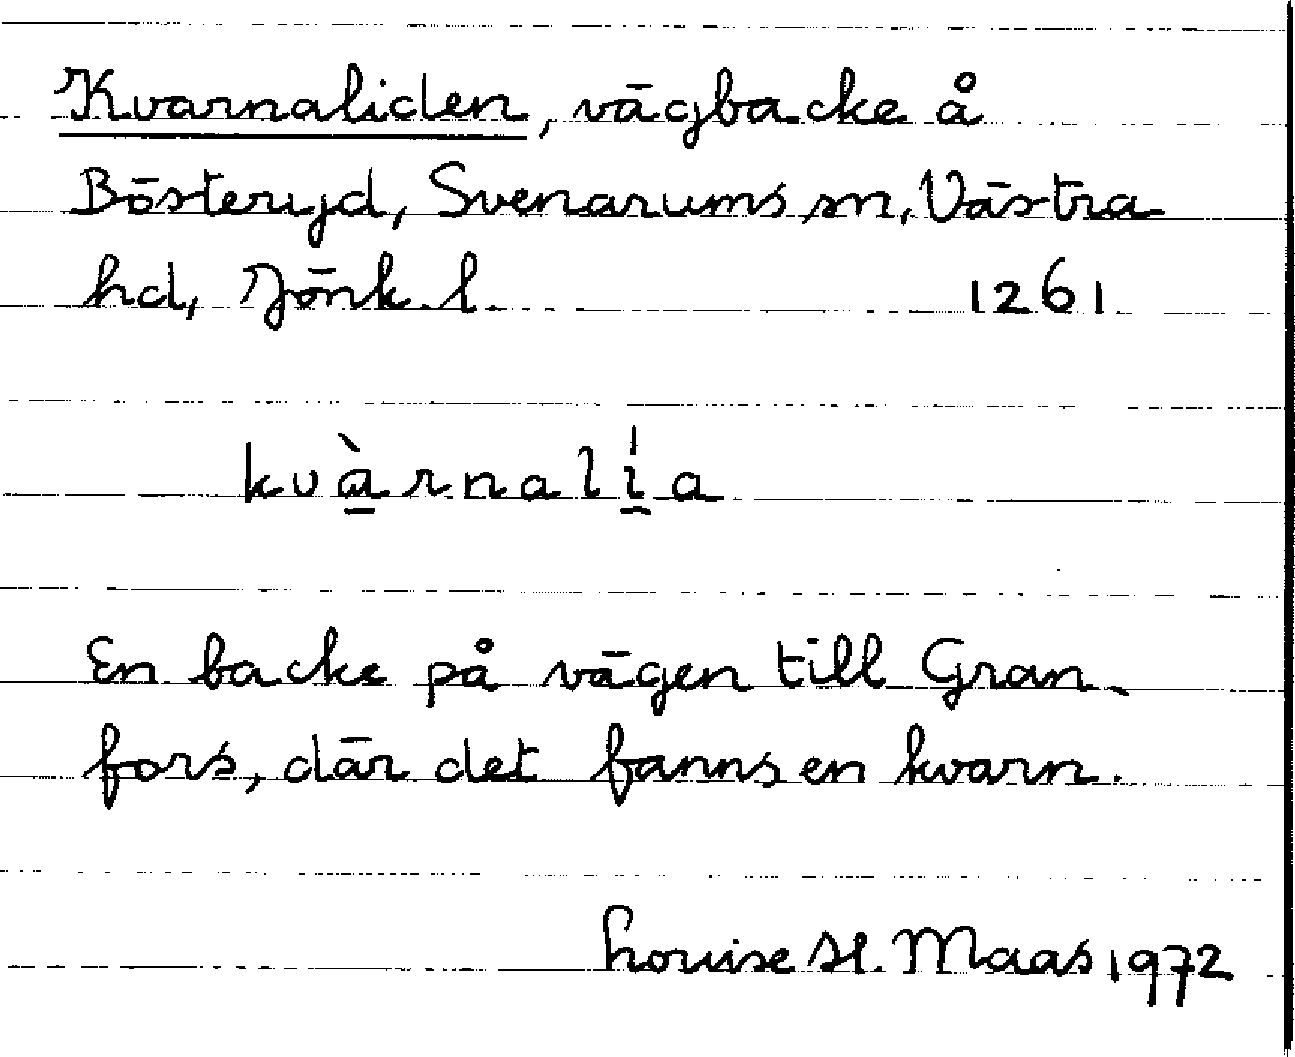 Kvarnaliden, vägbacke å
Bösteryd, Svenarums sn, Västra
hd, Jönk. l. 1261
kvàrnalía
En backe på vägen till Gran-
fors, där det fanns en kvarn.
Louise H. Maas 1972